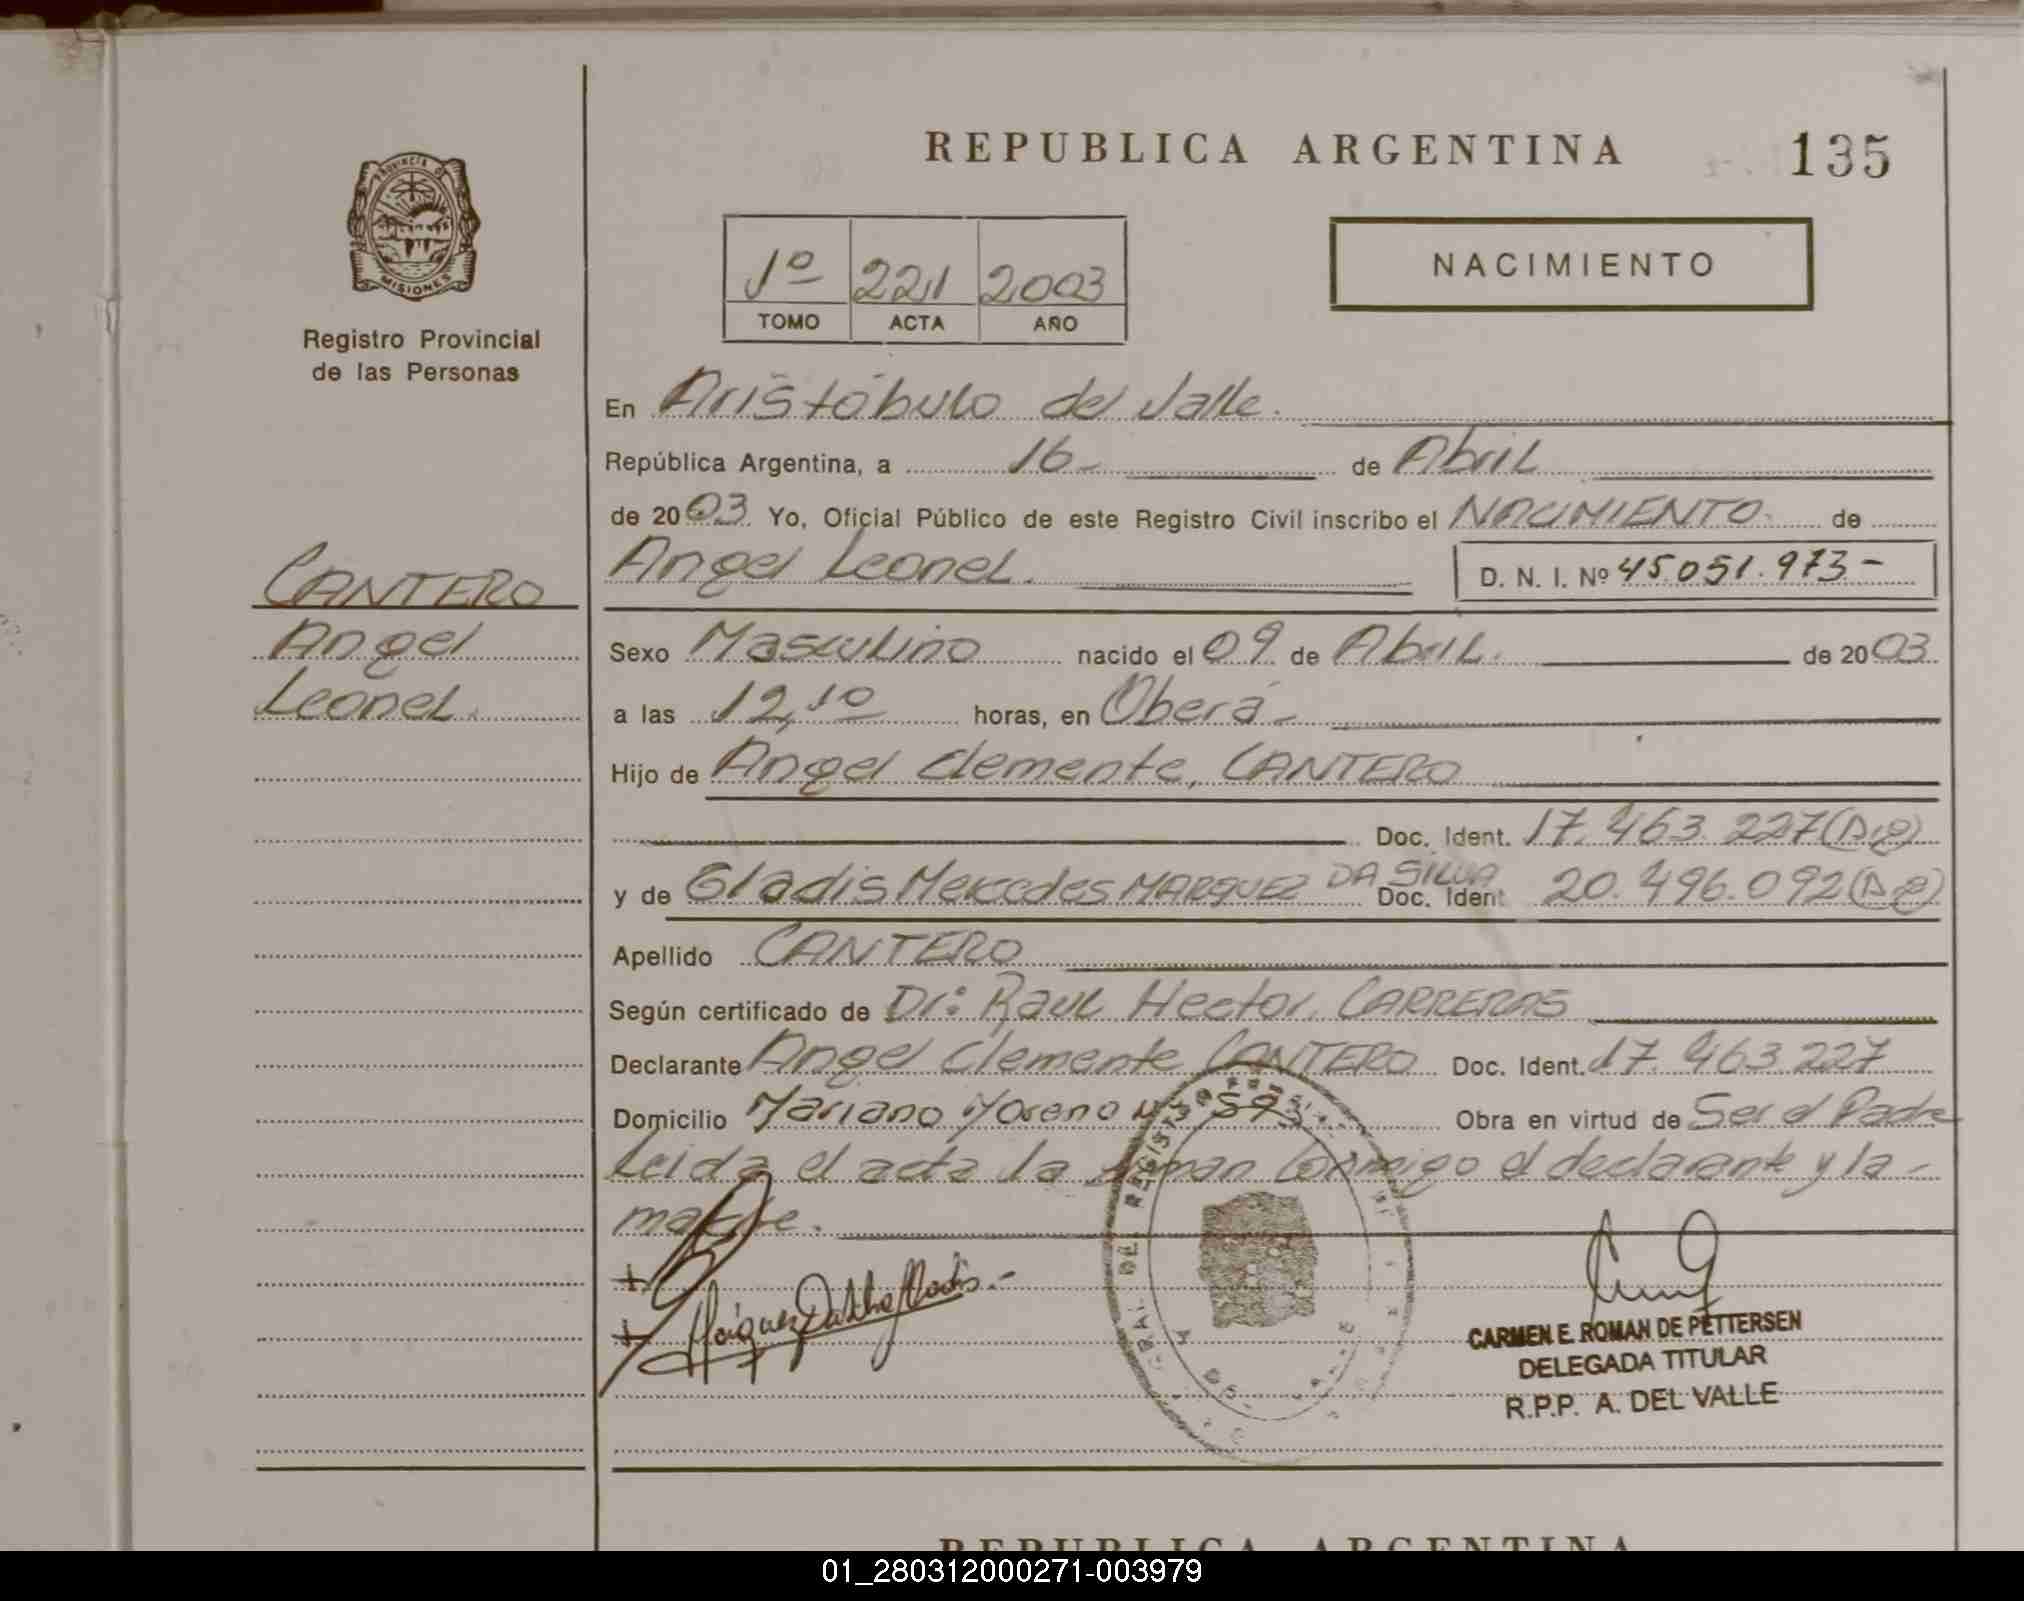 REPUBLICA ARGENTINA
135
PROVINCIA DE
MISIONES
Registro Provincial
de las Personas
1º 221 2003
TOMO ACTA AÑO
NACIMIENTO
En Aristóbulo del Valle.
República Argentina, a 16- de Abril
de 2003 Yo, Oficial Público de este Registro Civil inscribo el NACIMIENTO de
Angel Leonel.
D. N. I. Nº 45.051.973-
CANTERO
Angel
Leonel.
Sexo Masculino nacido el 09 de Abril. de 2003
a las 12,10 horas, en Oberá-
Hijo de Angel Clemente, CANTERO
Doc. Ident. 17.463.227(Arg)
y de Gladis Mercedes MARQUEZ DA SILVA Doc. Ident 20.496.092(Arg)
Apellido CANTERO
Según certificado de Dr: Raul Hector, CARRERAS
Declarante Angel Clemente CANTERO Doc. Ident. 17.463.227
Domicilio Mariano Moreno Nº 593 Obra en virtud de Ser el Padre
Leida el acta la firman conmigo el declarante y la-
madre.
CARMEN E. ROMAN DE PETTERSEN
DELEGADA TITULAR
R.P.P. A. DEL VALLE
REPUBLICA ARGENTINA
01_280312000271-003979